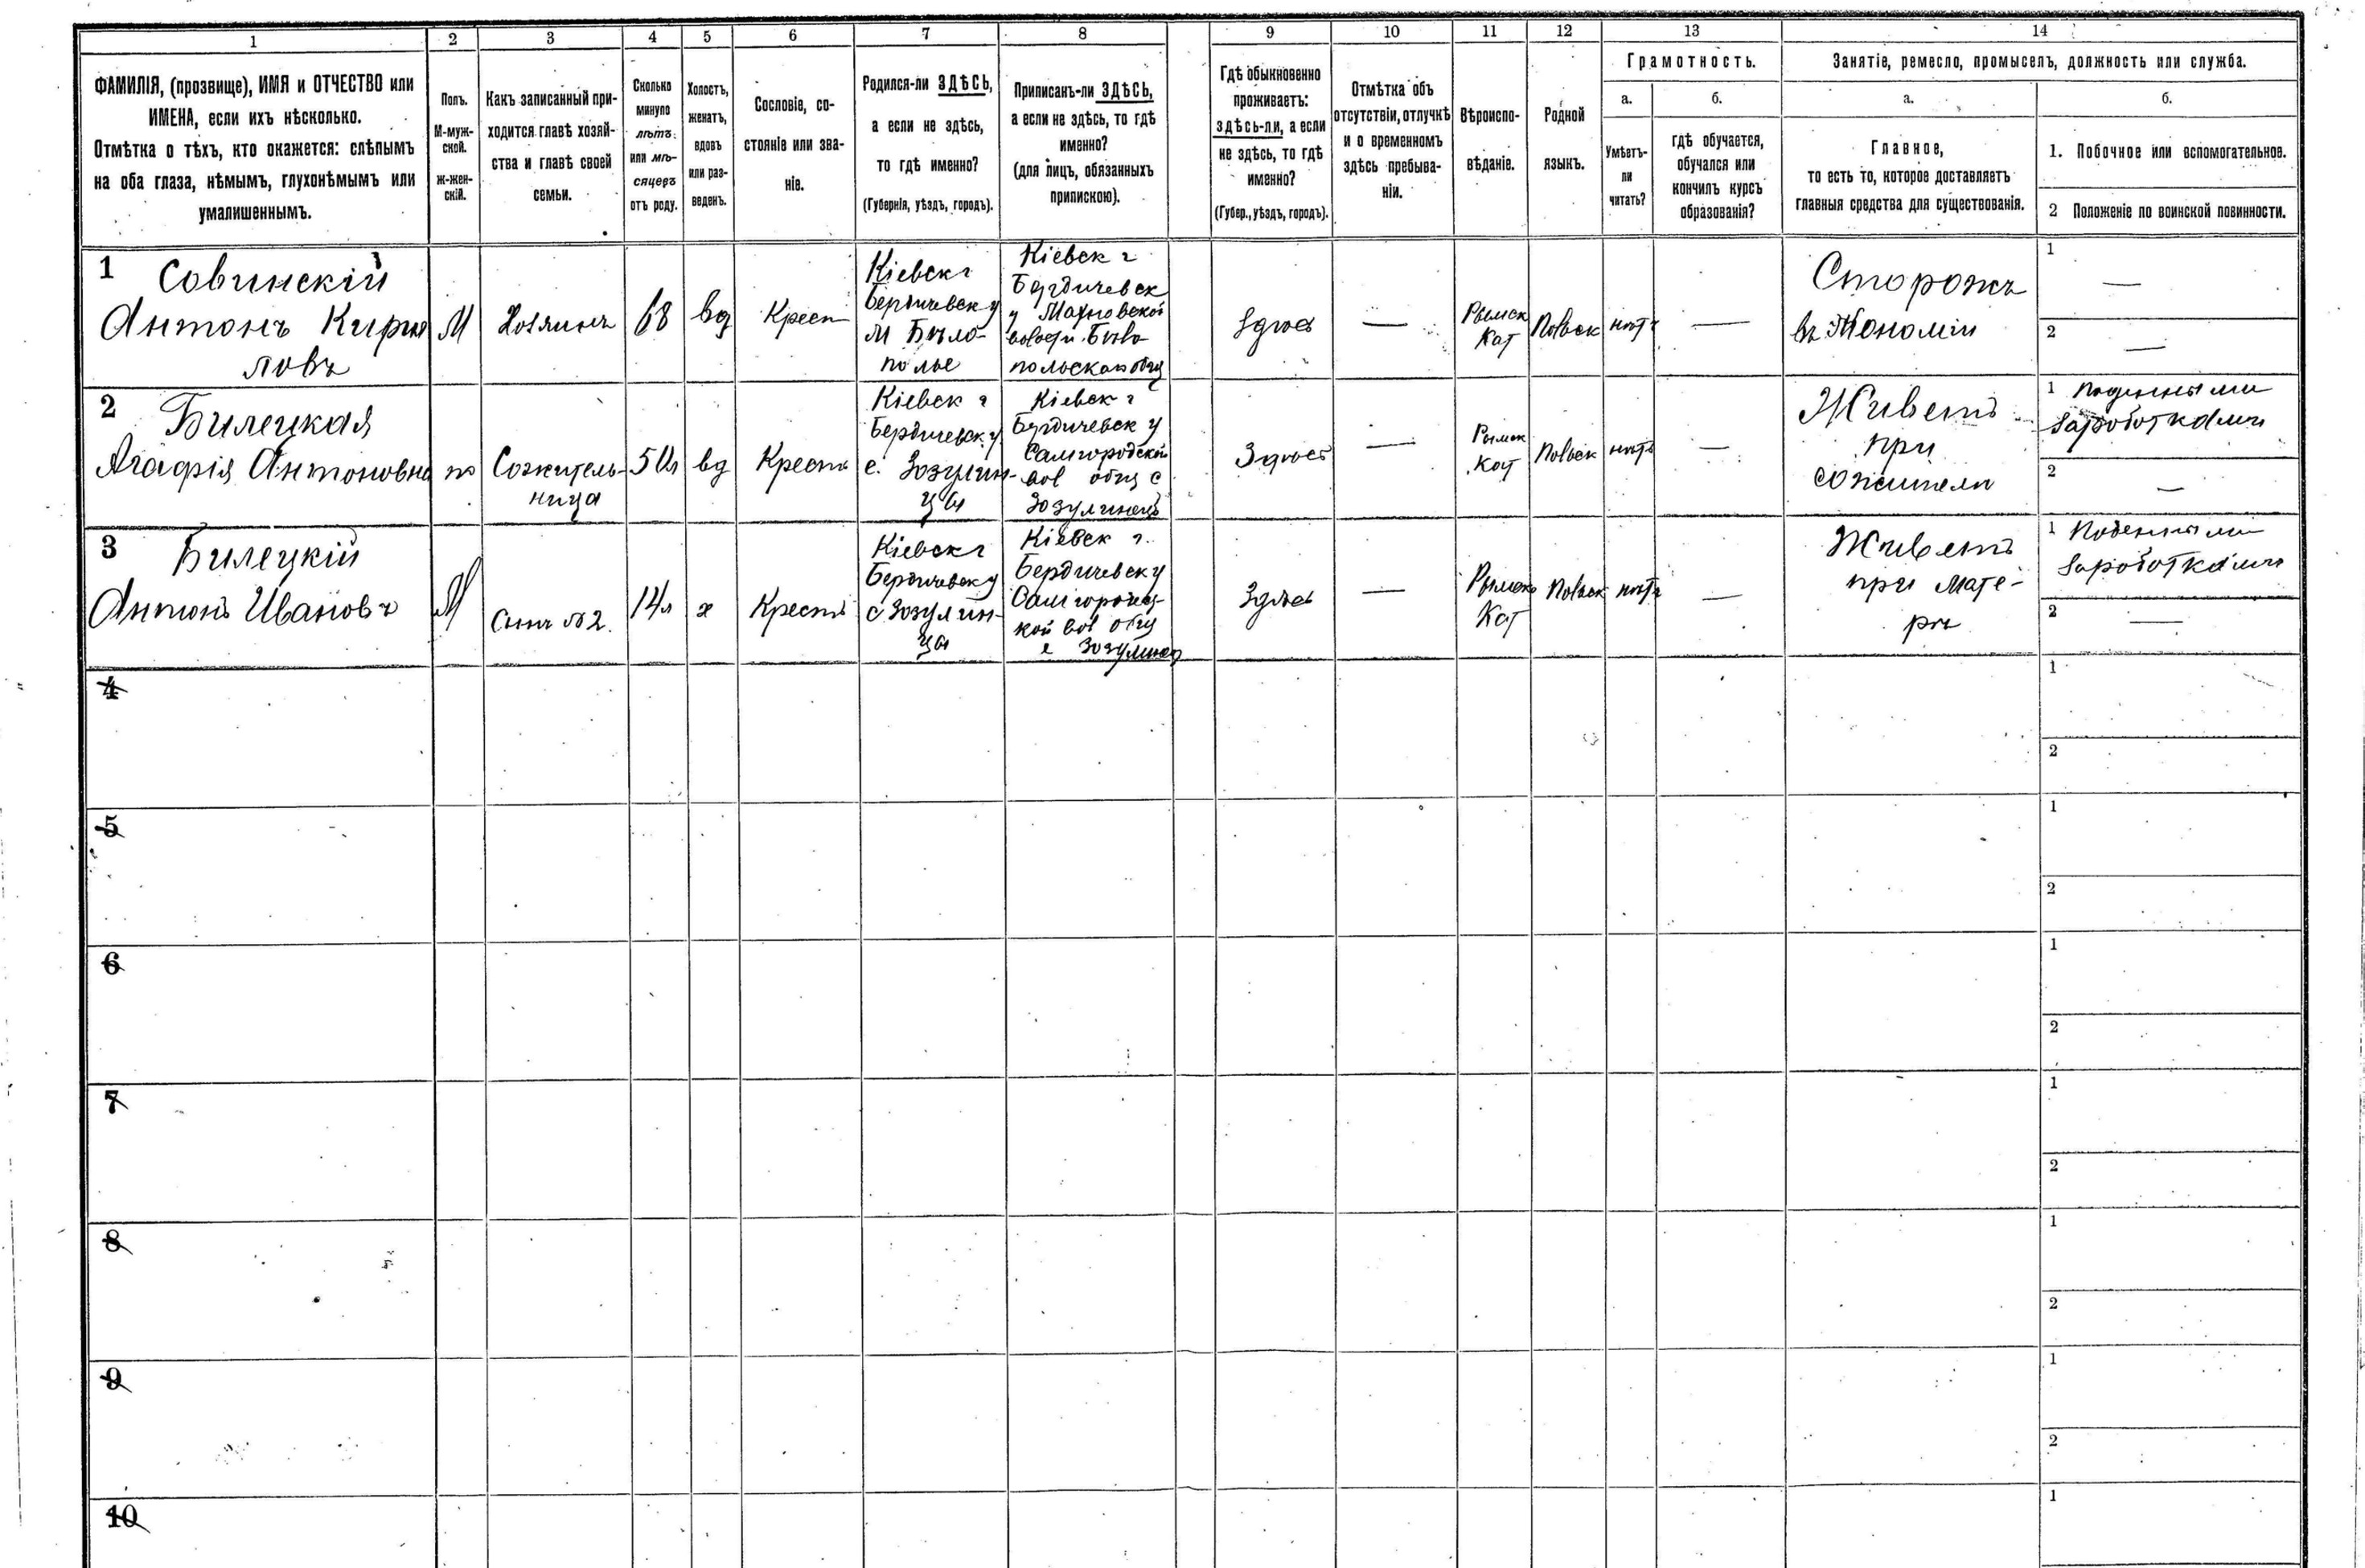 1 2 3 4 5 6 7 8 9 10 11 12 13 14
ФАМИЛІЯ, (прозвище), ИМЯ и ОТЧЕСТВО или
ИМЕНА, если ихъ нѣсколько.
Отмѣтка о тѣхъ, кто окажется: слѣпымъ
на оба глаза, нѣмымъ, глухонѣмымъ или
умалишеннымъ.
Полъ.
М-муж-
ской.
ж-жен-
скій.
Какъ записанный при-
ходится главѣ хозяй-
ства и главѣ своей
семьи.
Сколько
минуло
лѣтъ
или мѣ-
сяцевъ
отъ роду.
Холостъ,
женатъ,
вдовъ
или раз-
веденъ.
Сословіе, со-
стояніе или зва-
ніе.
Родился-ли ЗДѢСЬ,
а если не здѣсь,
то гдѣ именно?
(Губернія, уѣздъ, городъ).
Приписанъ-ли ЗДѢСЬ,
а если не здѣсь, то гдѣ
именно?
(для лицъ, обязанныхъ
припискою).
Гдѣ обыкновенно
проживаетъ:
здѣсь-ли, а если
не здѣсь, то гдѣ
именно?
(Губер., уѣздъ, городъ).
Отмѣтка объ
отсутствіи, отлучкѣ
и о временномъ
здѣсь пребыва-
ніи.
Вѣроиспо-
вѣданіе.
Родной
языкъ.
Грамотность.
а.
Умѣетъ-
ли
читать?
б.
гдѣ обучается,
обучался или
кончилъ курсъ
образованія?
Занятіе, ремесло, промыселъ, должность или служба.
а.
Главное,
то есть то, которое доставляетъ
главныя средства для существованія.
б.
1. Побочное или вспомогательное.
2 Положеніе по воинской повинности.
1 Совинскій
Антонъ Кири
ловъ
М
Хозяинъ
68
вд
Крест
Кіевск г
Бердичевск у
М Было-
полье
Кіевск г
Бердичевск
у Махновской
Здѣсь
—
Рымск
Кат
Польск
нѣтъ
—
Сторожъ
въ Экономіи
1
—
2
—
2 Билецкая
Агафія Антоновна
Сожитель-
ница
50л
вд
Крестъ
Кіевск г
Бердичевск у
с. Зозулин-
цы
Кіевск г
Бердичевск у
Самгородской
вол общ с
Зозулинецъ
Здѣсь
—
Рымск
Кат
Польск
нѣтъ
—
Живетъ
при
сожители
1 Поденными
заработками
2
—
3 Билецкій
Антонъ Ивановъ
М
Сынъ №2.
14л
х
Крестъ
Кіевск г
Бердичевск у
с Зозулин-
цы
Кіевск г.
Бердичевск у
Самгородс-
кой вол общ
с Зозулинец
Здѣсь
—
Рымск
Кат
Польск
нѣтъ
—
Живетъ
при мате-
ры
1 Поденными
заработками
2
—
4
1
2
5
1
2
6
1
2
7
1
2
8
1
2
9
1
2
10
1